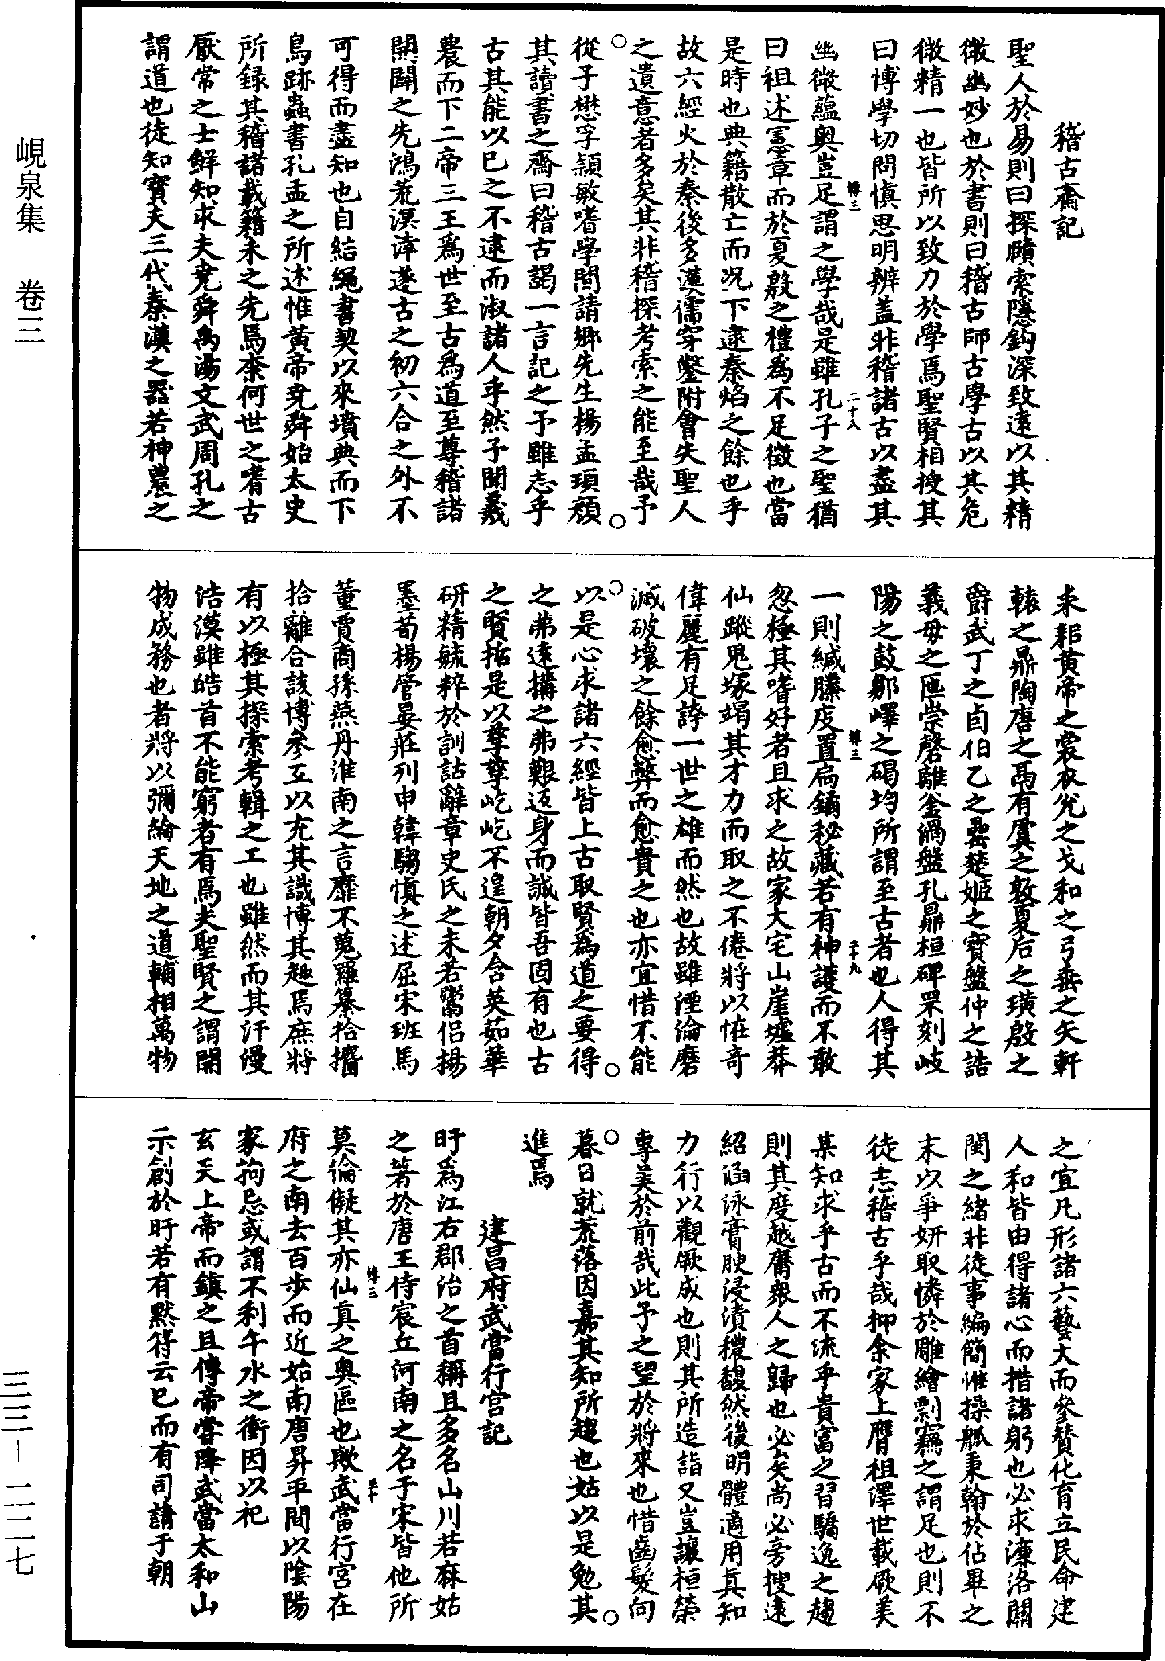 稽古齋記
聖人於易則曰探賾索隱鈎深致遠以其精
微幽妙也於書則曰稽古師古學古以其危
微精一也皆所以致力於學焉聖賢相授其
曰博學切問慎思明辨蓋非稽諸古以盡其
幽微蘊奧豈足謂之學哉是雖孔子之聖猶
曰祖述憲章而於夏殷之禮為不足徵也當
是時也典籍散亡而况下逮秦焰之餘也乎
故六經火於秦後多漢儒穿鑿附會失聖人
之遺意者多矣其非稽探考索之能至哉予
從子懋孚穎敏嗜學間請鄉先生楊孟瑱顏
其讀書之齋曰稽古謁一言記之予雖志乎
古其能以巳之不逮而淑諸人乎然予聞羲
農而下二帝三王為世至古為道至尊稽諸
開闢之先鴻荒溟涬邃古之初六合之外不
可得而盡知也自結繩書契以來墳典而下
鳥跡蟲書孔孟之所述惟黃帝堯舜始太史
所録其稽諸載籍未之先焉柰何世之嗜古
厭常之士鮮知求夫堯舜禹湯文武周孔之
謂道也徒知寳夫三代秦漢之器若神農之
耒耜黃帝之裳衣兊之戈和之弓垂之矢軒
轅之鼎陶唐之鬲有虞之敦夏后之璜殷之
爵武丁之卣伯乙之罍楚姬之寶盤仲之誥
義母之匜崇磬雕釜渦盤孔鼎桓碑罘刻岐
陽之鼓鄒嶧之碣均所謂至古者也人得其
一則緘縢庋置扃鐍秘藏若有神護而不敢
忽極其嗜好者且求之故家大宅山崖墟莽
仙蹤鬼塚竭其才力而取之不倦將以恠奇
偉麗有足誇一世之雄而然也故雖湮淪磨
滅破壞之餘愈弊而愈貴之也亦宜惜不能
以是心求諸六經皆上古聖賢為道之要得
之弗遠攟之弗艱返身而誠皆吾固有也古
之賢拓是以孳孳屹屹不遑朝夕含英茹華
研精毓粹於訓詁辭章史氏之未若鬻侣揚
墨荀楊管晏莊列申韓騶慎之述屈宋班馬
董賈商孫燕丹淮南之言靡不蒐羅纂拾攟
拾離合該博參互以充其識博其趣焉庶將
有以極其探索考輯之工也雖然而其汗漫
浩漠雖皓首不能窮者有焉夫聖賢之謂開
物成務也者將以彌綸天地之道輔相萬物
之宜凡形諸六藝大而參贊化育立民命建
人和皆由得諸心而措諸躬也必求濂洛關
閩之緒非徒事編簡惟操觚秉翰於佔畢之
末以爭妍取憐於雕繪剽竊之謂足也則不
徒志稽古乎哉抑余家上膺祖澤世載厥美
某知求乎古而不流乎貴富之習驕逸之趨
則其度越膺衆人之歸也必矣尚必旁搜遠
紹涵泳膏腴浸漬穠馥然後明體適用真知
力行以觀厥成也則其所造詣又豈讓桓榮
專美於前哉此予之望於將來也惜齒髮向
暮日就荒落因嘉其知所趨也姑以是勉其
進焉
建昌府武當行宮記
盱為江右郡治之首稱且多名山川若麻姑
之著於唐王侍宸丘河南之名于宋皆他所
莫倫儗其亦仙真之奥區也歟武當行宮在
府之南去百步而近始南唐昇平間以陰陽
家拘忌或謂不利午水之衝因以祀
玄天上帝而鎮之且傳帝嘗降武當太和山
示創於盱若有默符云巳而有司請于朝
峴泉集 卷三
三三—二二七